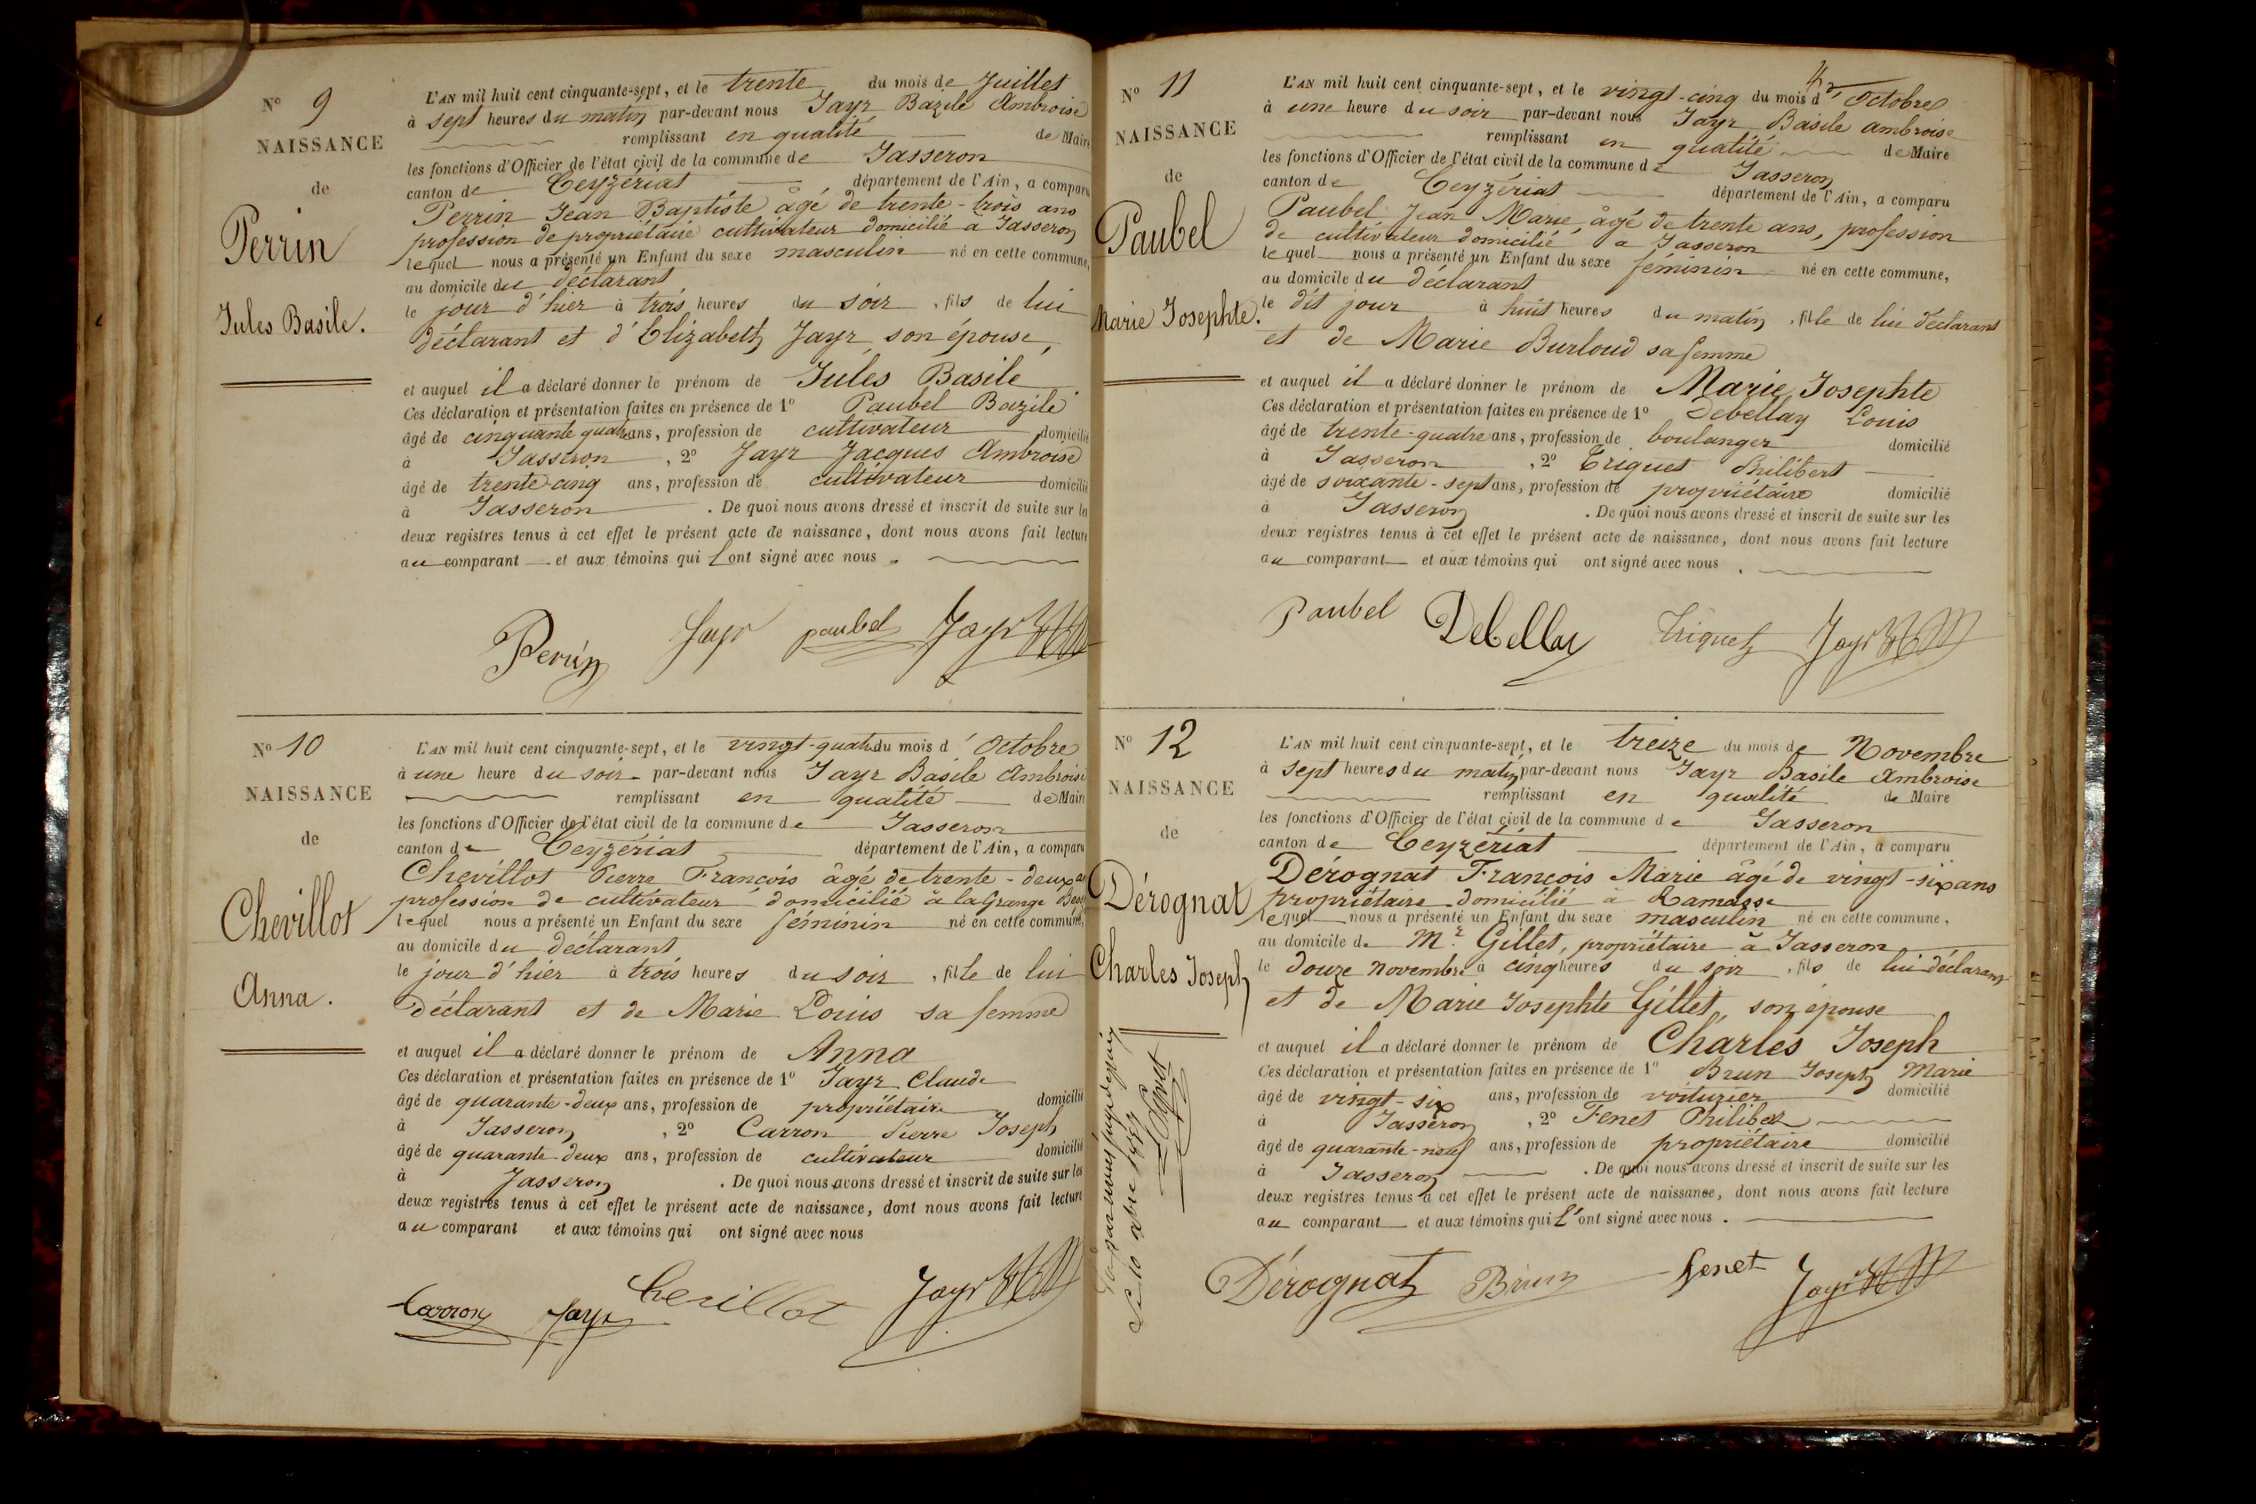 N° 9
NAISSANCE
de
Perrin
Jules Basile.
L'AN mil huit cent cinquante-sept, et le trente du mois de Juillet
à sept heures du matin par-devant nous Jayr Bazile Ambroise
remplissant en qualité de Maire
les fonctions d'Officier de l'état civil de la commune de Jasseron
canton de Ceyzériat département de l'Ain, a comparu
Perrin Jean Baptiste âgé de trente-trois ans
profession de propriétaire cultivateur domicilié à Jasseron
lequel nous a présenté un Enfant du sexe masculin né en cette commune,
au domicile du déclarant
le jour d'hier à trois heures du soir, fils de lui
déclarant et d'Elizabeth Jayr son épouse,
et auquel il a déclaré donner le prénom de Jules Basile
Ces déclaration et présentation faites en présence de 1° Paubel Bazile
âgé de cinquante quatre ans, profession de cultivateur domicilié
à Jasseron, 2° Jayr Jacques Ambroise
âgé de trente-cinq ans, profession de cultivateur domicilié
à Jasseron. De quoi nous avons dressé et inscrit de suite sur les
deux registres tenus à cet effet le présent acte de naissance, dont nous avons fait lecture
au comparant et aux témoins qui l'ont signé avec nous.
Perrin Jayr paubel Jayr
N° 10
NAISSANCE
de
Chevillot
Anna.
L'AN mil huit cent cinquante-sept, et le vingt-quatre du mois d'Octobre
à une heure du soir par-devant nous Jayr Basile Ambroise
remplissant en qualité de Maire
les fonctions d'Officier de l'état civil de la commune de Jasseron
canton de Ceyzériat département de l'Ain, a comparu
Chevillot Pierre François âgé de trente-deux ans
profession de cultivateur domicilié à la Grange
lequel nous a présenté un Enfant du sexe féminin né en cette commune,
au domicile du déclarant
le jour d'hier à trois heures du soir, fille de lui
déclarant et de Marie Louis sa femme
et auquel il a déclaré donner le prénom de Anna
Ces déclaration et présentation faites en présence de 1° Jayr Claude
âgé de quarante-deux ans, profession de propriétaire domicilié
à Jasseron, 2° Carron Pierre Joseph
âgé de quarante-deux ans, profession de cultivateur domicilié
à Jasseron. De quoi nous avons dressé et inscrit de suite sur les
deux registres tenus à cet effet le présent acte de naissance, dont nous avons fait lecture
au comparant et aux témoins qui ont signé avec nous
Carron Jayr Chevillot Jayr
N° 11
NAISSANCE
de
Paubel
Marie Josephte.
L'AN mil huit cent cinquante-sept, et le vingt-cinq du mois d'Octobre
à une heure du soir par-devant nous Jayr Basile Ambroise
remplissant en qualité de Maire
les fonctions d'Officier de l'état civil de la commune de Jasseron
canton de Ceyzériat département de l'Ain, a comparu
Paubel Jean Marie, âgé de trente ans, profession
de cultivateur domicilié, à Jasseron
lequel nous a présenté un Enfant du sexe féminin né en cette commune,
au domicile du déclarant
le dit jour à huit heures du matin, fille de lui déclarant
et de Marie Burloud sa femme
et auquel il a déclaré donner le prénom de Marie Josephte
Ces déclaration et présentation faites en présence de 1° Debellay Louis
âgé de trente-quatre ans, profession de boulanger domicilié
à Jasseron, 2° Triquet Philibert
âgé de soixante-sept ans, profession de propriétaire domicilié
à Jasseron. De quoi nous avons dressé et inscrit de suite sur les
deux registres tenus à cet effet le présent acte de naissance, dont nous avons fait lecture
au comparant et aux témoins qui ont signé avec nous.
Paubel Debellay Triquet Jayr
N° 12
NAISSANCE
de
Dérognat
Charles Joseph
L'AN mil huit cent cinquante-sept, et le treize du mois de Novembre
à sept heures du matin par-devant nous Jayr Basile Ambroise
remplissant en qualité de Maire
les fonctions d'Officier de l'état civil de la commune de Jasseron
canton de Ceyzériat département de l'Ain, a comparu
Dérognat François Marie âgé de vingt-six ans
propriétaire domicilié à Ramasse
lequel nous a présenté un Enfant du sexe masculin né en cette commune,
au domicile de Mr. Gillet, propriétaire à Jasseron
le douze novembre à cinq heures du soir, fils de lui déclarant
et de Marie Josephte Gillet, son épouse
et auquel il a déclaré donner le prénom de Charles Joseph
Ces déclaration et présentation faites en présence de 1° Brun Joseph Marie
âgé de vingt-six ans, profession de voiturier domicilié
à Jasseron, 2° Fenet Philibert
âgé de quarante-neuf ans, profession de propriétaire domicilié
à Jasseron. De quoi nous avons dressé et inscrit de suite sur les
deux registres tenus à cet effet le présent acte de naissance, dont nous avons fait lecture
au comparant et aux témoins qui l'ont signé avec nous.
Dérognat Brun fenet Jayr
par nous juge de paix
1857